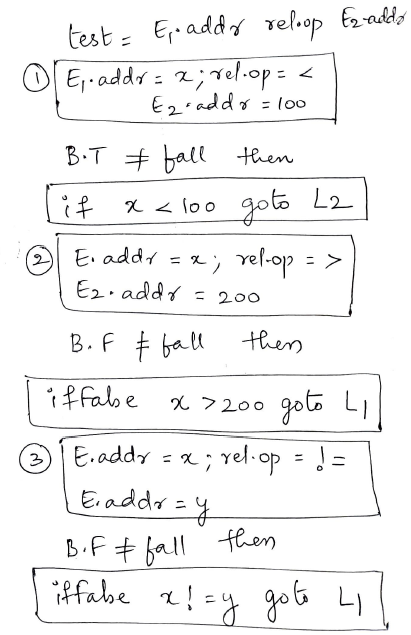 test = E₁.addr rel.op E₂.addr
① E₁.addr = x ; rel.op = <
E₂.addr = 100
B.T ≠ fall then
if x < 100 goto L2
② E.addr = x ; rel.op = >
E₂.addr = 200
B.F ≠ fall then
iffalse x > 200 goto L1
③ E.addr = x ; rel.op = !=
E.addr = y
B.F ≠ fall then
iffalse x != y goto L1